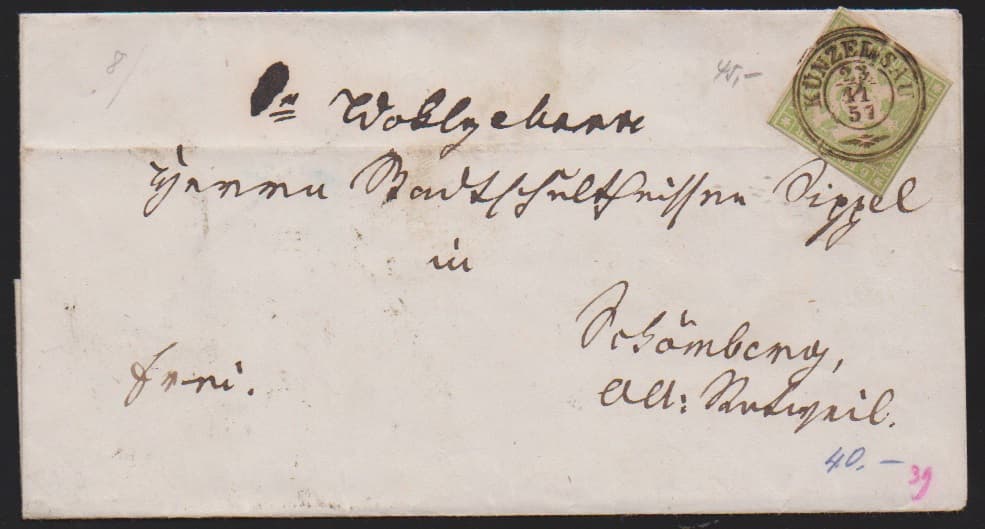 8/
45,-
KÜNZELSAU
23
11
57
Sr Wohlgeboren
Herrn Stadtschultheissen Sippel
in
Schömberg,
OA: Rotweil.
frei.
40.-
39